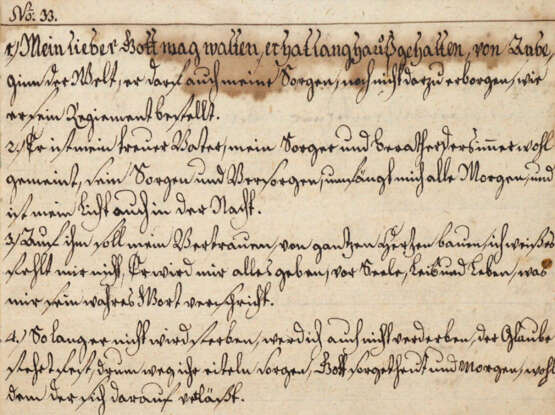 No: 33.
1./ Mein lieber Gott mag walten, er hat lang hauß gehalten, von Anbe,
ginn der Welt, er darf auch meine Sorgen, noch nicht darzu erborgen, wie
er sein Regiement bestellt.
2./ Er ist mein treuer Vater, mein Sorger und berather der's immer wohl
gemeint, sein Sorgen und Versorgen, umfängt mich alle Morgen, und
ist mein licht auch in der Nacht.
3./ Auf ihm soll mein Vertrauen, von gantzen Hertzen bauen, ich weiß es
fehlt mir nicht, Er wird mir alles geben, vor Seele, Leib und Leben, was
mir sein wahres Wort verspricht.
4./ So lang er nicht wird sterben, werd ich auch nicht verderben, der Glaube
stehet fest, drum weg ihr eiteln sorgen, Gott sorget heut und Morgen, wohl
dem der sich darauf verläßt.